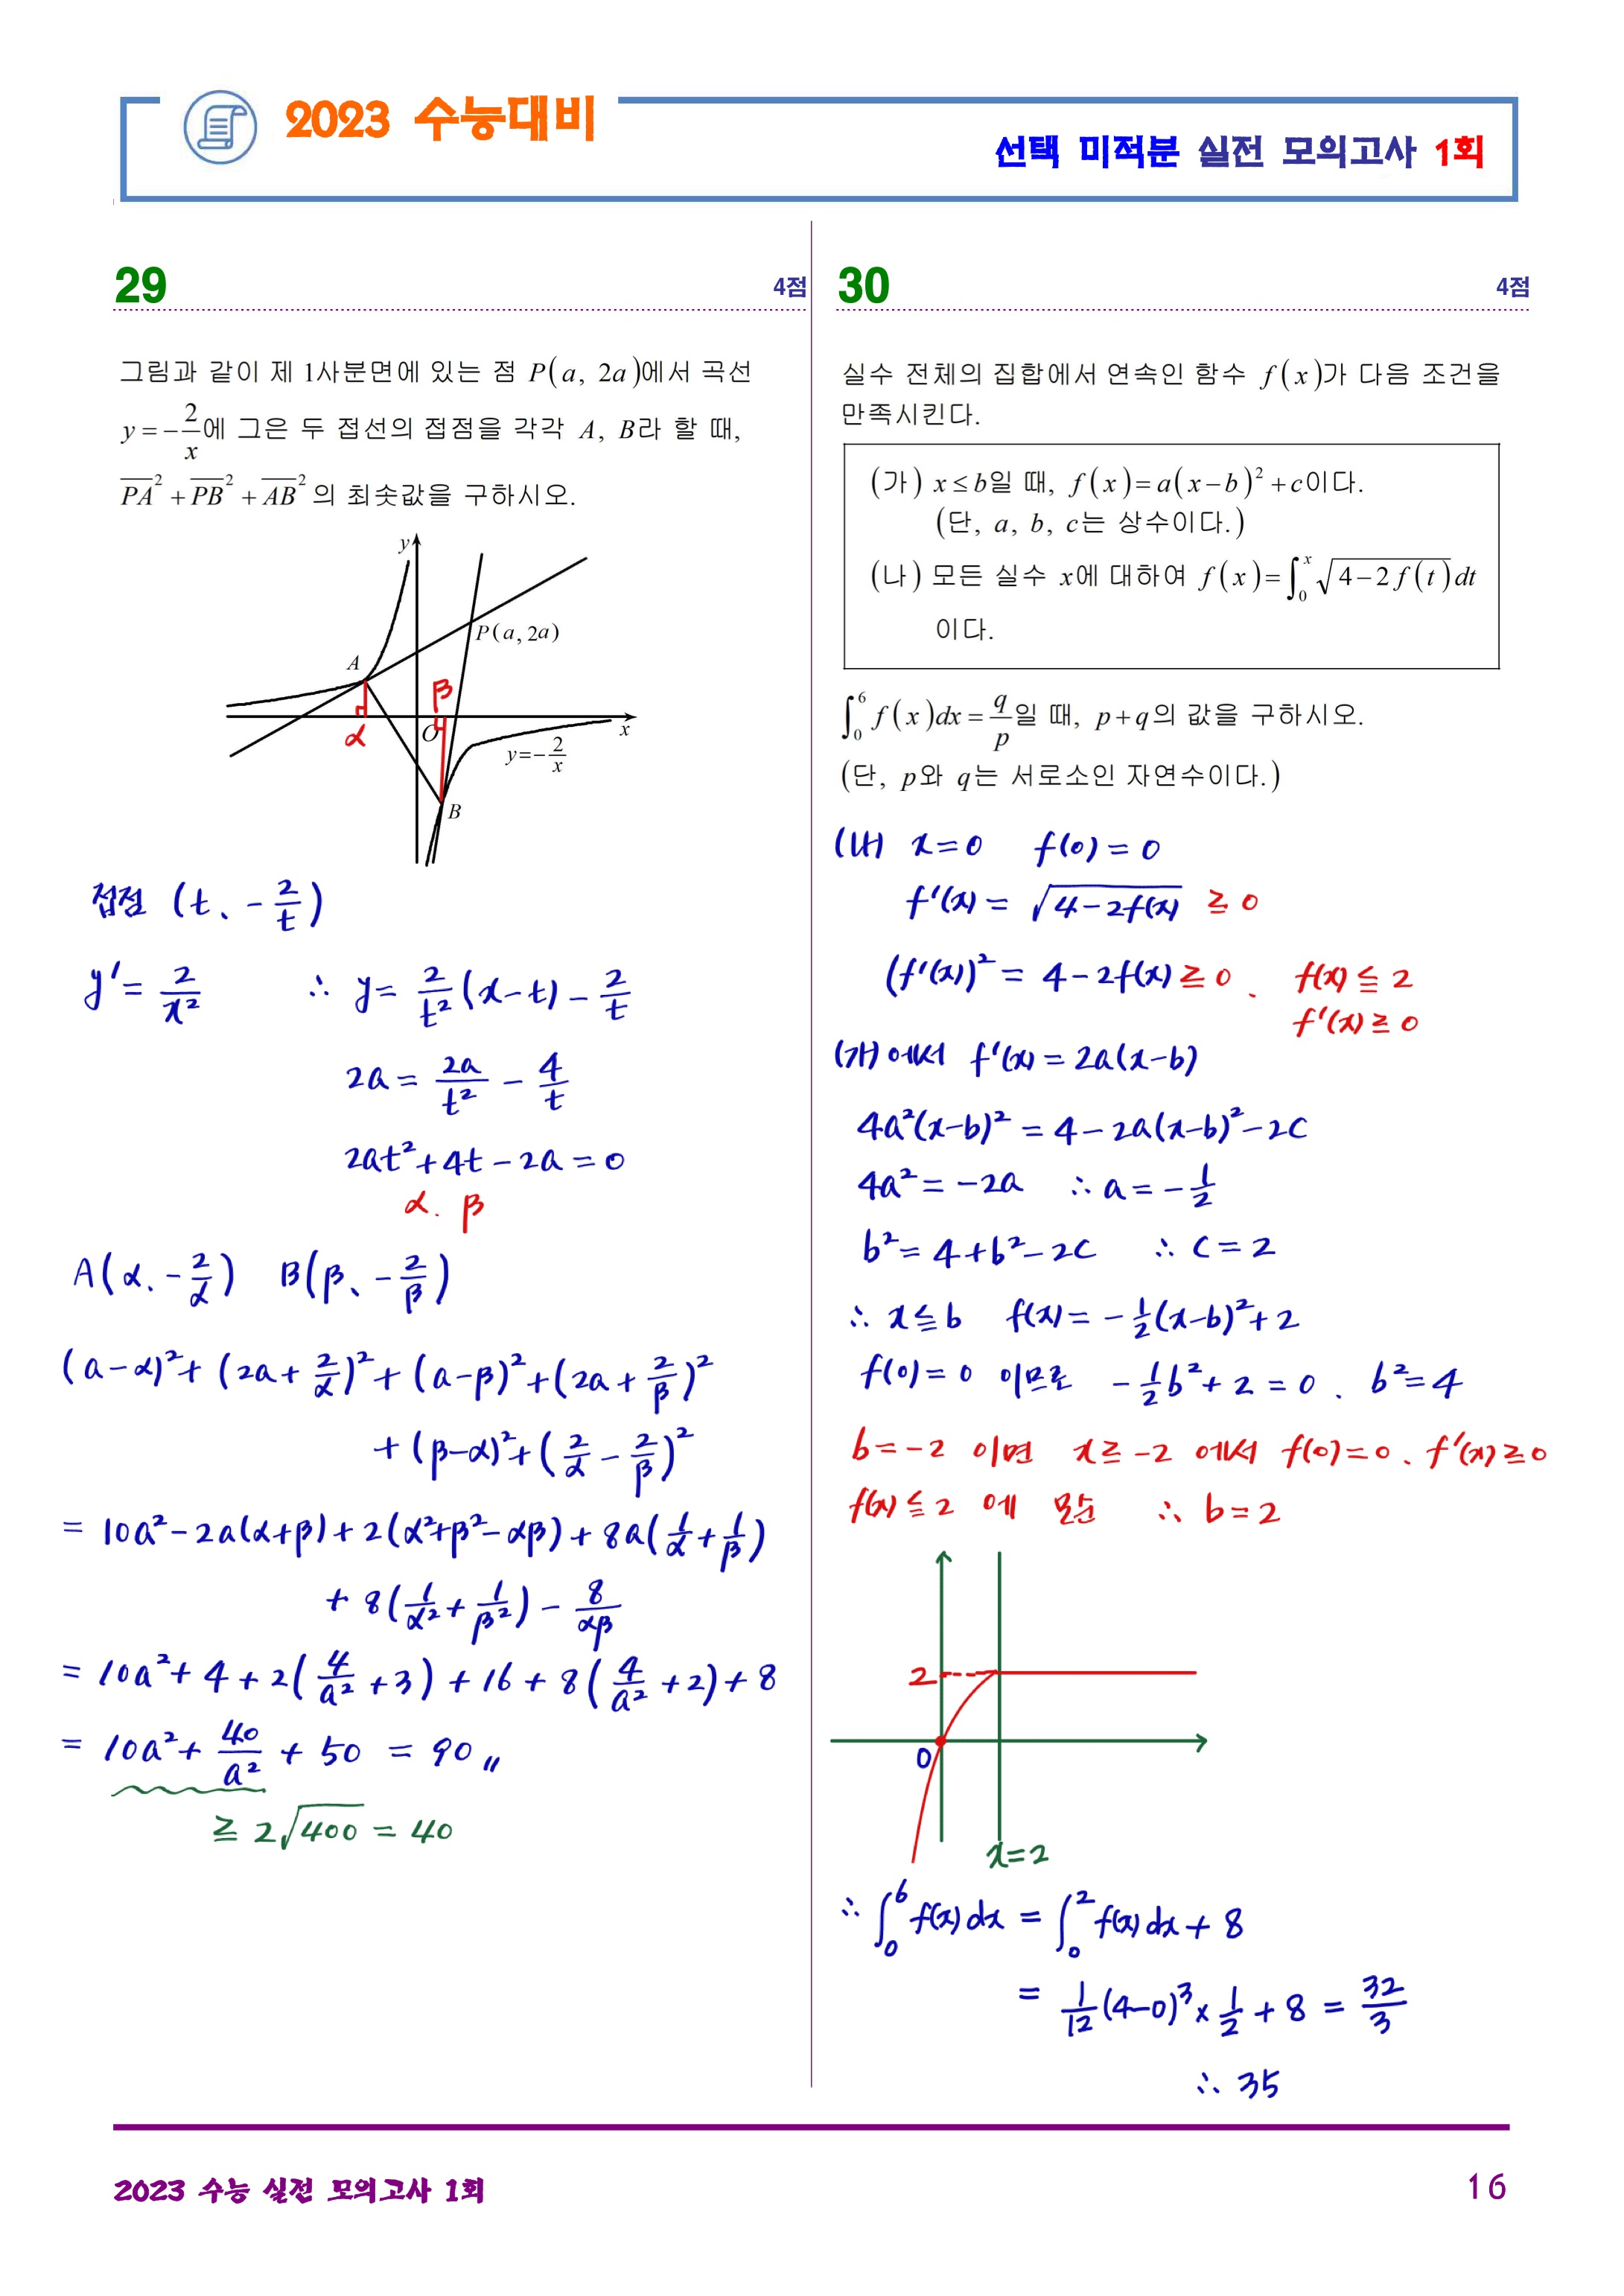 2023 수능대비
선택 미적분 실전 모의고사 1회
29
4점
그림과 같이 제 1사분면에 있는 점 P(a, 2a)에서 곡선
y = -2/x에 그은 두 접선의 접점을 각각 A, B라 할 때,
PA² + PB² + AB² 의 최솟값을 구하시오.
y
P(a, 2a)
A
β
α
O
x
y = -2/x
B
접점 (t, -2/t)
y' = 2/x² ∴ y = 2/t²(x-t) - 2/t
2a = 2a/t² - 4/t
2at² + 4t - 2a = 0
α. β
A(α, -2/α) B(β, -2/β)
(a-α)² + (2a + 2/α)² + (a-β)² + (2a + 2/β)²
+ (β-α)² + (2/α - 2/β)²
= 10a² - 2a(α+β) + 2(α²+β²-αβ) + 8a(1/α + 1/β)
+ 8(1/α² + 1/β²) - 8/αβ
= 10a² + 4 + 2(4/a² + 3) + 16 + 8(4/a² + 2) + 8
= 10a² + 40/a² + 50 = 90〃
≧ 2√400 = 40
30
4점
실수 전체의 집합에서 연속인 함수 f(x)가 다음 조건을
만족시킨다.
(가) x ≤ b일 때, f(x) = a(x-b)² + c이다.
(단, a, b, c는 상수이다.)
(나) 모든 실수 x에 대하여 f(x) = ∫₀ˣ √(4-2f(t)) dt
이다.
∫₀⁶ f(x)dx = q/p일 때, p+q의 값을 구하시오.
(단, p와 q는 서로소인 자연수이다.)
(나) x=0 f(0) = 0
f'(x) = √(4-2f(x)) ≧ 0
(f'(x))² = 4-2f(x) ≧ 0. f(x) ≦ 2
f'(x) ≧ 0
(가)에서 f'(x) = 2a(x-b)
4a²(x-b)² = 4-2a(x-b)²-2c
4a² = -2a ∴ a = -1/2
b² = 4+b²-2c ∴ c = 2
∴ x ≦ b f(x) = -1/2(x-b)² + 2
f(0) = 0 이므로 -1/2b² + 2 = 0. b² = 4
b = -2 이면 x ≧ -2 에서 f(0) = 0. f'(x) ≧ 0
f(x) ≦ 2 에 모순 ∴ b = 2
2
0
x=2
∴ ∫₀⁶ f(x)dx = ∫₀² f(x)dx + 8
= 1/12(4-0)³ × 1/2 + 8 = 32/3
∴ 35
2023 수능 실전 모의고사 1회
16